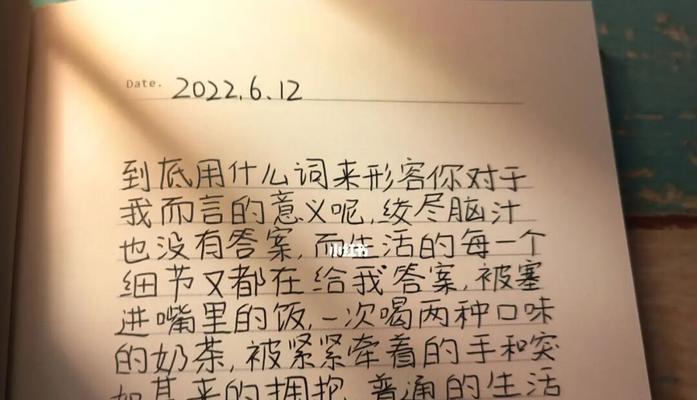 Date. 2022.6.12
到底用什么词来形容你对于
我而言的意义呢,绞尽脑汁
也没有答案,而生活的每一个
小红书
细节又都在给我答案,被塞
进嘴里的饭,一次喝两种口味
的奶茶,被紧紧牵着的手和突
如其来的拥抱,普通的生活